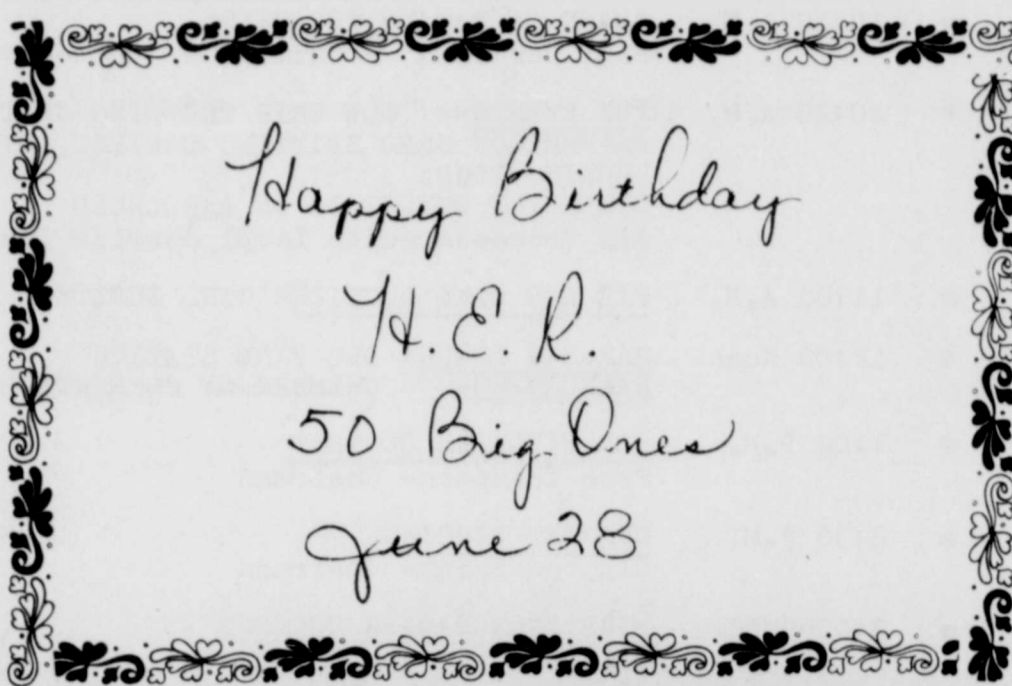 Happy Birthday
H.E.R.
50 Big Ones
June 28